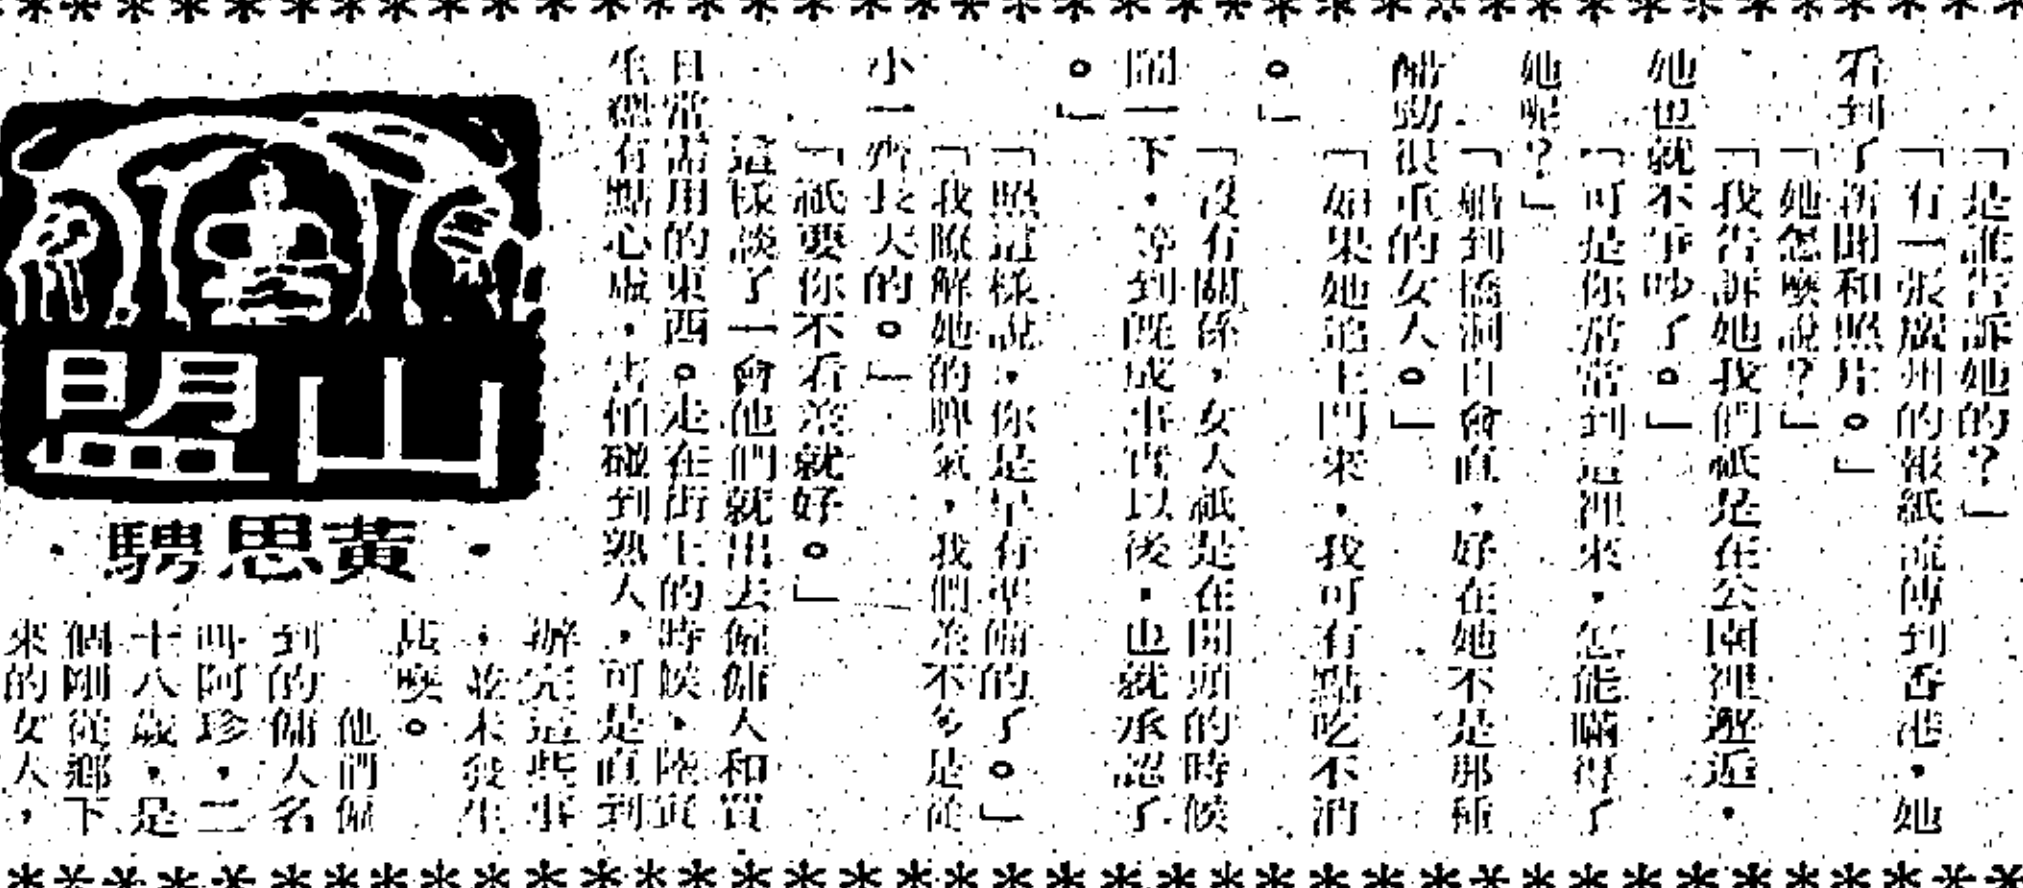 「是誰告訴她的？」
「有一張廣州的報紙流傳到香港，她
看到了新聞和照片。」
「她怎麼說？」
「我告訴她我們祇是在公園裡邂逅，
她也就不爭吵了。」
「可是你常常到這裡來，怎能瞞得了
她呢？」
「船到橋洞自會直，好在她不是那種
醋勁很重的女人。」
「如果她追上門來，我可有點吃不消
。」
「沒有關係，女人祇是在開頭的時候
鬧一下，等到既成事實以後，也就承認了
。」
「照這樣說，你是早有準備的了。」
「我瞭解她的脾氣，我們差不多是從
小一齊長大的。」
「祇要你不看差就好。」
這樣談了一會他們就出去僱傭人和買
日常需用的東西。走在街上的時候，陸寅
生還有點心虛，害怕碰到熟人，可是直到
山盟
·黃思騁·
辦完這些事
，並未發生
甚麼。
他們僱
到的傭人名
叫阿珍，二
十八歲，是
個剛從鄉下
來的女人，